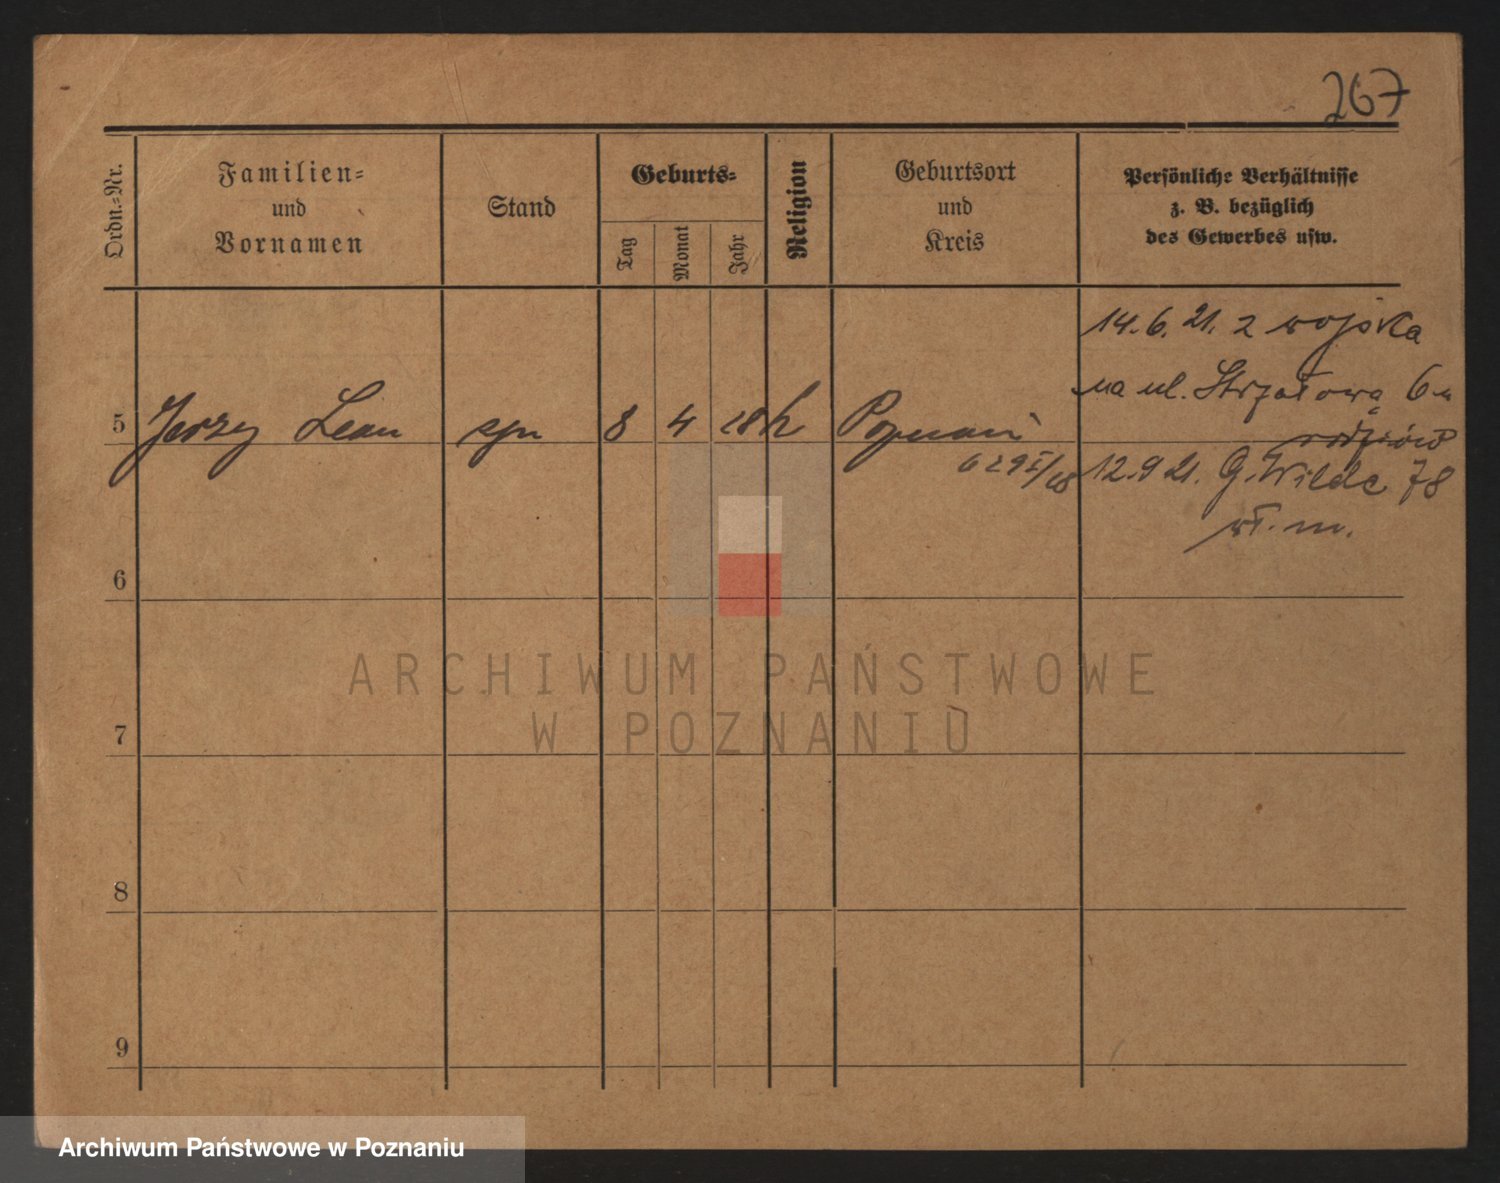 267
Ordn.-Nr.
Familien-
und
Vornamen
Stand
Geburts-
Tag
Monat
Jahr
Religion
Geburtsort
und
Kreis
Persönliche Verhältnisse
z. B. bezüglich
des Gewerbes usw.
14. 6. 21. z wojska
na ul. Strzałową 6 u
rodziców
5 Jerzy Leon syn 8 4 18 k Poznań
12. 9 21. G. Wilda 78
wł. m.
6
7
8
9
ARCHIWUM PAŃSTWOWE
W POZNANIU
Archiwum Państwowe w Poznaniu